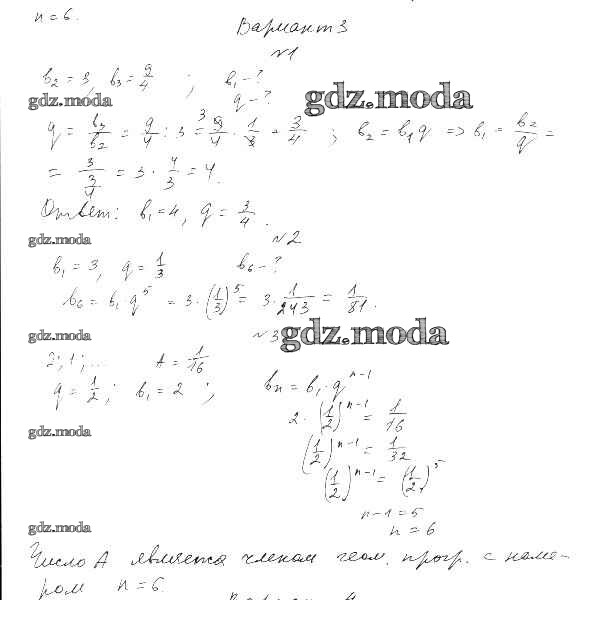 n = 6.
Вариант 3
№1
b₂ = 3, b₃ = 9/4 ; b₁ - ?
gdz.moda
q - ?
gdz.moda
q = b₃/b₂ = 9/4 : 3 = 9/4 · 1/3 = 3/4 ; b₂ = b₁q => b₁ = b₂/q =
= 3/(3/4) = 3 · 4/3 = 4.
Ответ: b₁ = 4, q = 3/4.
gdz.moda
№2
b₁ = 3, q = 1/3 b₆ - ?
b₆ = b₁q⁵ = 3 · (1/3)⁵ = 3 · 1/243 = 1/81.
gdz.moda
№3
gdz.moda
2; 1; ... A = 1/16
q = 1/2 ; b₁ = 2 ; bₙ = b₁ · qⁿ⁻¹
2 · (1/2)ⁿ⁻¹ = 1/16
gdz.moda
(1/2)ⁿ⁻¹ = 1/32
(1/2)ⁿ⁻¹ = (1/2)⁵
n - 1 = 5
gdz.moda
n = 6
Число A является членом геом. прогр. с номе-
ром n = 6.